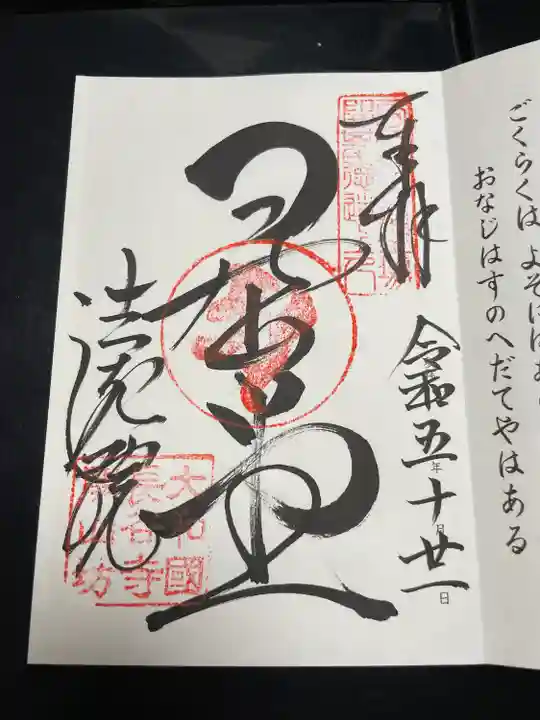 ごくらくは よそにはあ
おなじはすのへだてやはある
奉拝
令和五年十月廿一日
開山堂
法起院
大和國
長谷寺
開山坊